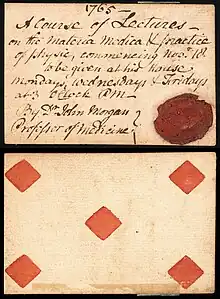 1765
A Course of Lectures
on the materia Medica & practice
of physic, commencing Nov. 18
to be given at his house
mondays, Wednesdays & Fridays
at 3 Clock PM
By Dr. John Morgan
Professor of medicine